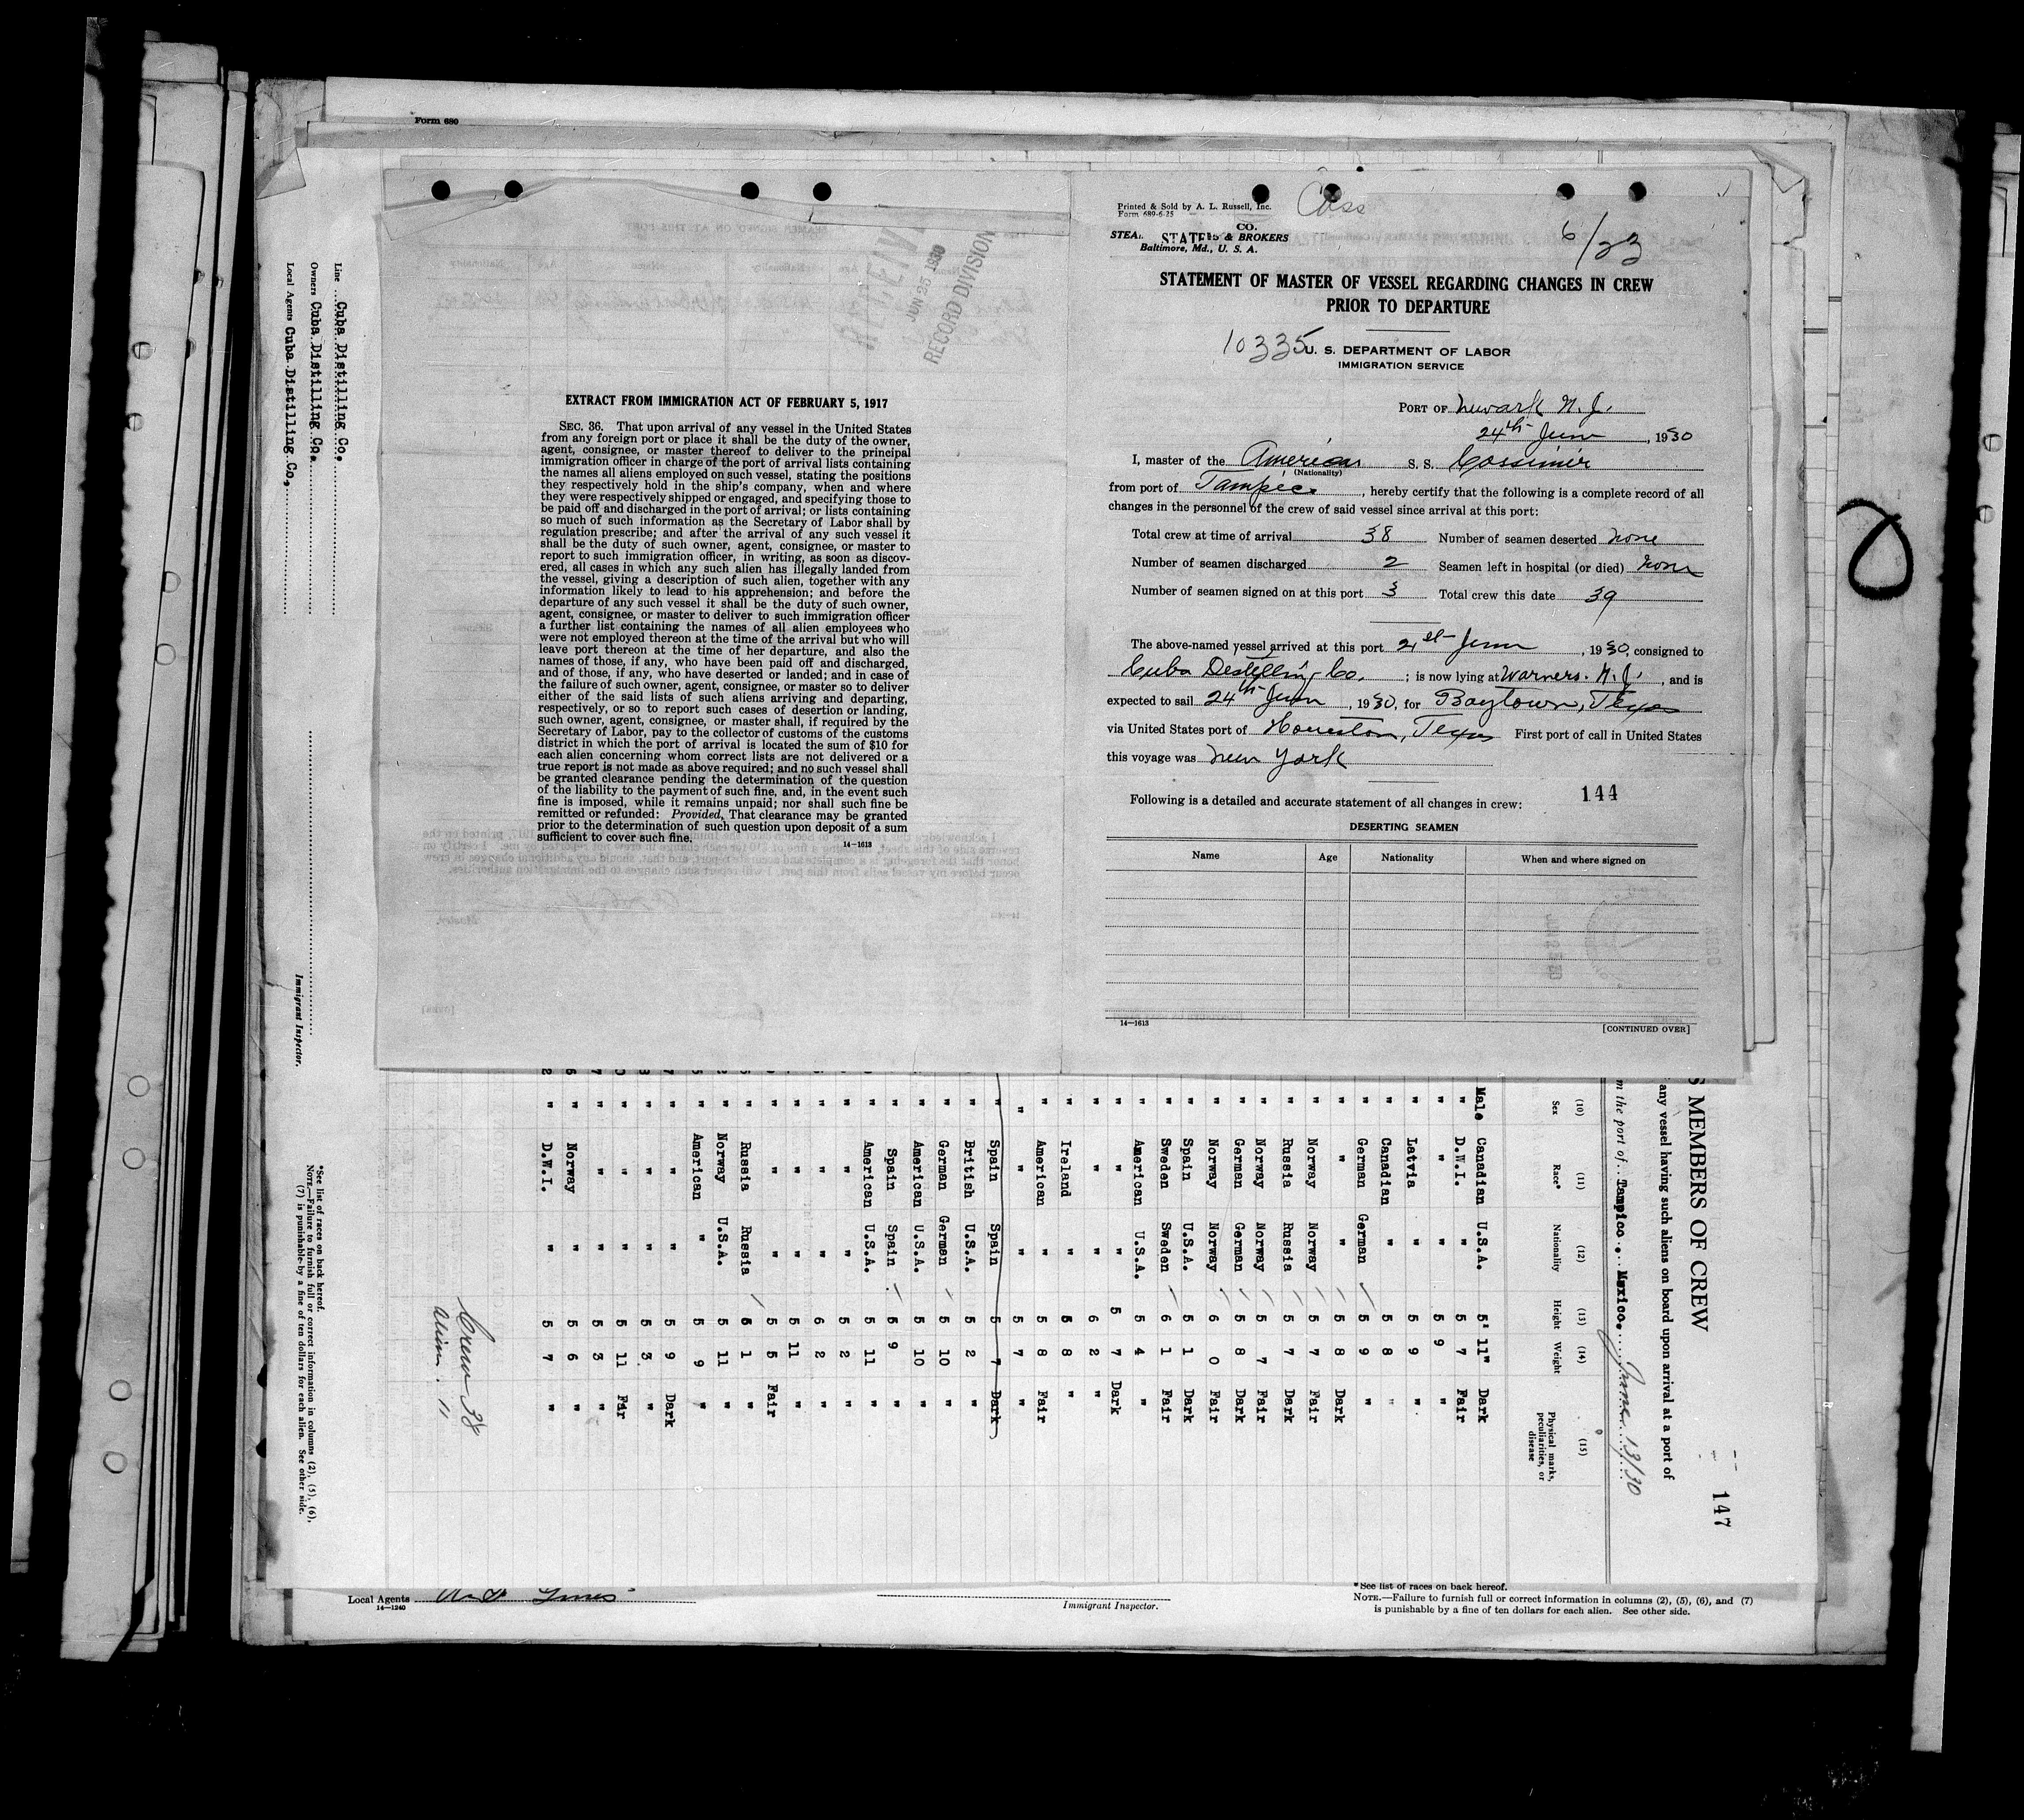 Form 680
EXTRACT FROM IMMIGRATION ACT OF FEBRUARY 5, 1917
SEC. 36. That upon arrival of any vessel in the United States
from any foreign port or place it shall be the duty of the owner,
agent, consignee, or master thereof to deliver to the principal
immigration officer in charge of the port of arrival lists containing
the names all aliens employed on such vessel, stating the positions
they respectively hold in the ship's company, when and where
they were respectively shipped or engaged, and specifying those to
be paid off and discharged in the port of arrival; or lists containing
so much of such information as the Secretary of Labor shall by
regulation prescribe; and after the arrival of any such vessel it
shall be the duty of such owner, agent, consignee, or master to
report to such immigration officer, in writing, as soon as discov-
ered, all cases in which any such alien has illegally landed from
the vessel, giving a description of such alien, together with any
information likely to lead to his apprehension; and before the
departure of any such vessel it shall be the duty of such owner,
agent, consignee, or master to deliver to such immigration officer
a further list containing the names of all alien employees who
were not employed thereon at the time of the arrival but who will
leave port thereon at the time of her departure, and also the
names of those, if any, who have been paid off and discharged,
and of those, if any, who have deserted or landed; and in case of
the failure of such owner, agent, consignee, or master so to deliver
either of the said lists of such aliens arriving and departing,
respectively, or so to report such cases of desertion or landing,
such owner, agent, consignee, or master shall, if required by the
Secretary of Labor, pay to the collector of customs of the customs
district in which the port of arrival is located the sum of $10 for
each alien concerning whom correct lists are not delivered or a
true report is not made as above required; and no such vessel shall
be granted clearance pending the determination of the question
of the liability to the payment of such fine, and, in the event such
fine is imposed, while it remains unpaid; nor shall such fine be
remitted or refunded: Provided, That clearance may be granted
prior to the determination of such question upon deposit of a sum
sufficient to cover such fine.
14—1613
JUN 25 1930
RECORD DIVISION
Printed & Sold by A. L. Russell, Inc.
Form 689-6-25
CO.
& BROKERS
Baltimore, Md., U. S. A.
6/23
STATEMENT OF MASTER OF VESSEL REGARDING CHANGES IN CREW
PRIOR TO DEPARTURE
10335
U. S. DEPARTMENT OF LABOR
IMMIGRATION SERVICE
PORT OF Newark N. J.
24th June, 1930
I, master of the American S. S. Cossimir
(Nationality)
from port of Tampico, hereby certify that the following is a complete record of all
changes in the personnel of the crew of said vessel since arrival at this port:
Total crew at time of arrival 38 Number of seamen deserted none
Number of seamen discharged 2 Seamen left in hospital (or died) none
Number of seamen signed on at this port 3 Total crew this date 39
The above-named vessel arrived at this port 21st June, 1930, consigned to
Cuba Destilling Co. ; is now lying at Warners. N. J., and is
expected to sail 24th June, 1930, for Baytown, Texas
via United States port of Houston, Texas First port of call in United States
this voyage was New York
Following is a detailed and accurate statement of all changes in crew: 144
DESERTING SEAMEN
Name Age Nationality When and where signed on
14—1613 [CONTINUED OVER]
MEMBERS OF CREW
147
any vessel having such aliens on board upon arrival at a port of
the port of Tampico, Mexico. June 13/30
(10) (11) (12) (13) (14) (15)
Sex Race* Nationality Height Weight Physical marks, peculiarities, or disease
Male Canadian U.S.A. 5' 11" Dark
" D.W.I. " 5 7 Fair
" " " 5 9 "
" Latvia " 5 9 "
" Canadian " 5 8 "
" German German 5 9 "
" " " 5 8 Dark
" Norway Norway 5 7 Fair
" Russia Russia 5 7 Dark
" Norway Norway 5 7 Fair
" German German 5 8 Dark
" Norway Norway 6 0 Fair
" Spain U.S.A. 5 1 Dark
" Sweden Sweden 6 1 Fair
" American U.S.A. 5 4 "
" " " 5 7 Dark
" " " 6 2 "
" Ireland " 5 8 "
" American " 5 8 Fair
" " " 5 7 "
" Spain Spain 5 7 Dark
" British U.S.A. 5 2 "
" German German 5 10 "
" American U.S.A. 5 10 "
" Spain Spain 5 9 "
" American U.S.A. 5 11 "
" " " 5 2 "
" " " 6 2 "
" " " 5 11 "
" " " 5 5 Fair
" Russia Russia 5 1 "
" Norway U.S.A. 5 11 "
" American " 5 9 "
" " " 5 9 Dark
" " " 5 3 "
" " " 5 11 Fair
" " " 5 3 "
" Norway " 5 6 "
" D.W.I. " 5 7 "
Crew 38
Alien. 11
Line Cuba Distilling Co.
Owners Cuba Distilling Co.
Local Agents Cuba Distilling Co.
Immigrant Inspector.
*See list of races on back hereof.
NOTE.—Failure to furnish full or correct information in columns (2), (5), (6),
(7) is punishable by a fine of ten dollars for each alien. See other side.
Local Agents
14—1240
Immigrant Inspector.
*See list of races on back hereof.
NOTE.—Failure to furnish full or correct information in columns (2), (5), (6), and (7)
is punishable by a fine of ten dollars for each alien. See other side.